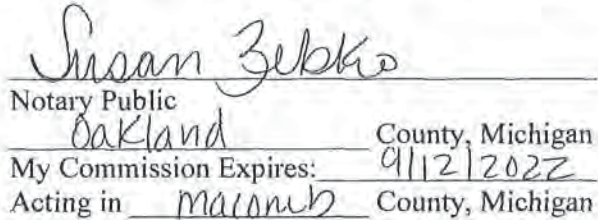 Susan Zebko
Notary Public
Oakland County, Michigan
My Commission Expires: 9/12/2022
Acting in Macomb County, Michigan